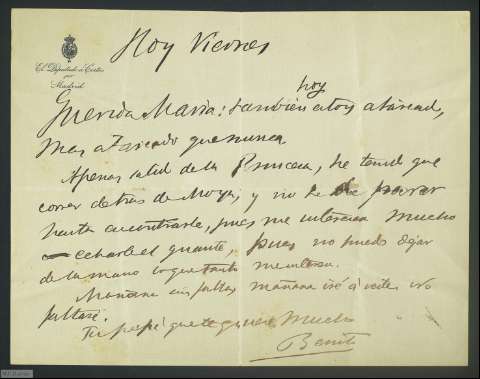 Hoy Viernes
El Diputado á Cortes
por
Madrid
hoy
Querida María: también estoy atareado,
mas atareado que nunca
Apenas salí de la Princesa, he tenido que
correr detrás de Moya, y no he de parar
hasta encontrarle, pues me interesa mucho
echarle el guante, pues no puedo dejar
de la mano lo que tanto me interesa.
Mañana sin falta, mañana iré á verte. No
faltaré.
Tu papá que te quiere mucho
Benito